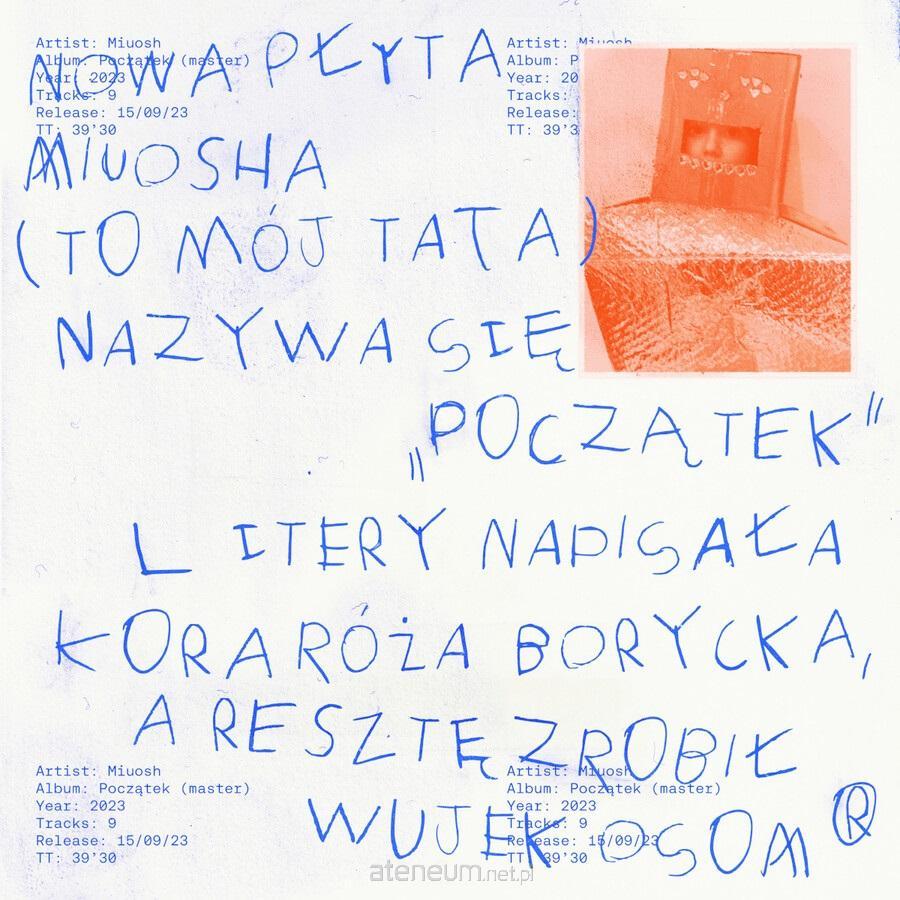 Artist: Miuosh
Album: Początek (master)
Year: 2023
Tracks: 9
Release: 15/09/23
TT: 39'30
Artist: Miuosh
Album: P
Year: 20
Tracks:
Release:
TT: 39'3
NOWA PŁYTA
MIUOSHA
(TO MÓJ TATA)
NAZYWA SIĘ
„POCZĄTEK"
LITERY NAPISAŁA
KORA RÓŻA BORYCKA,
A RESZTĘ ZROBIŁ
WUJEK OSOM ®
Artist: Miuosh
Album: Początek (master)
Year: 2023
Tracks: 9
Release: 15/09/23
TT: 39'30
Artist: Miuosh
Album: Początek (master)
Year: 2023
Tracks: 9
Release: 15/09/23
TT: 39'30
ateneum.net.pl